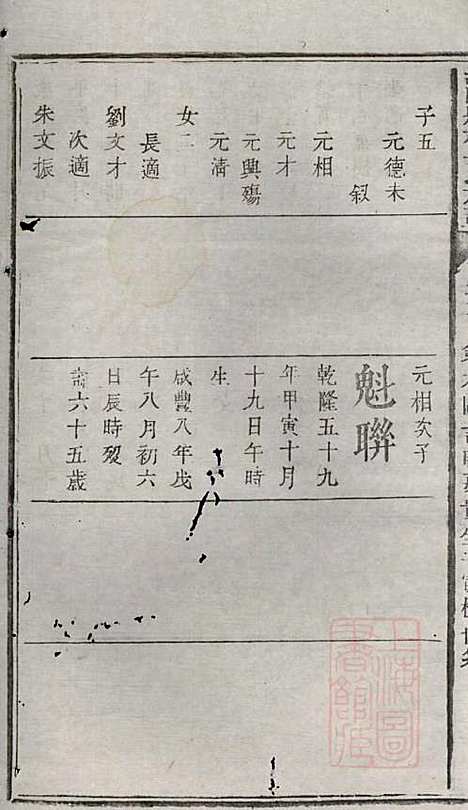 子五
元德未
叙
元相
元才
元興殤
元淸
女二
長適
劉文才
次適
朱文振
元相次子
魁聯
乾隆五十九
年甲寅十月
十九日午時
生
咸豐八年戊
午八月初六
日辰時歿
壽六十五歲
上海圖
書館藏